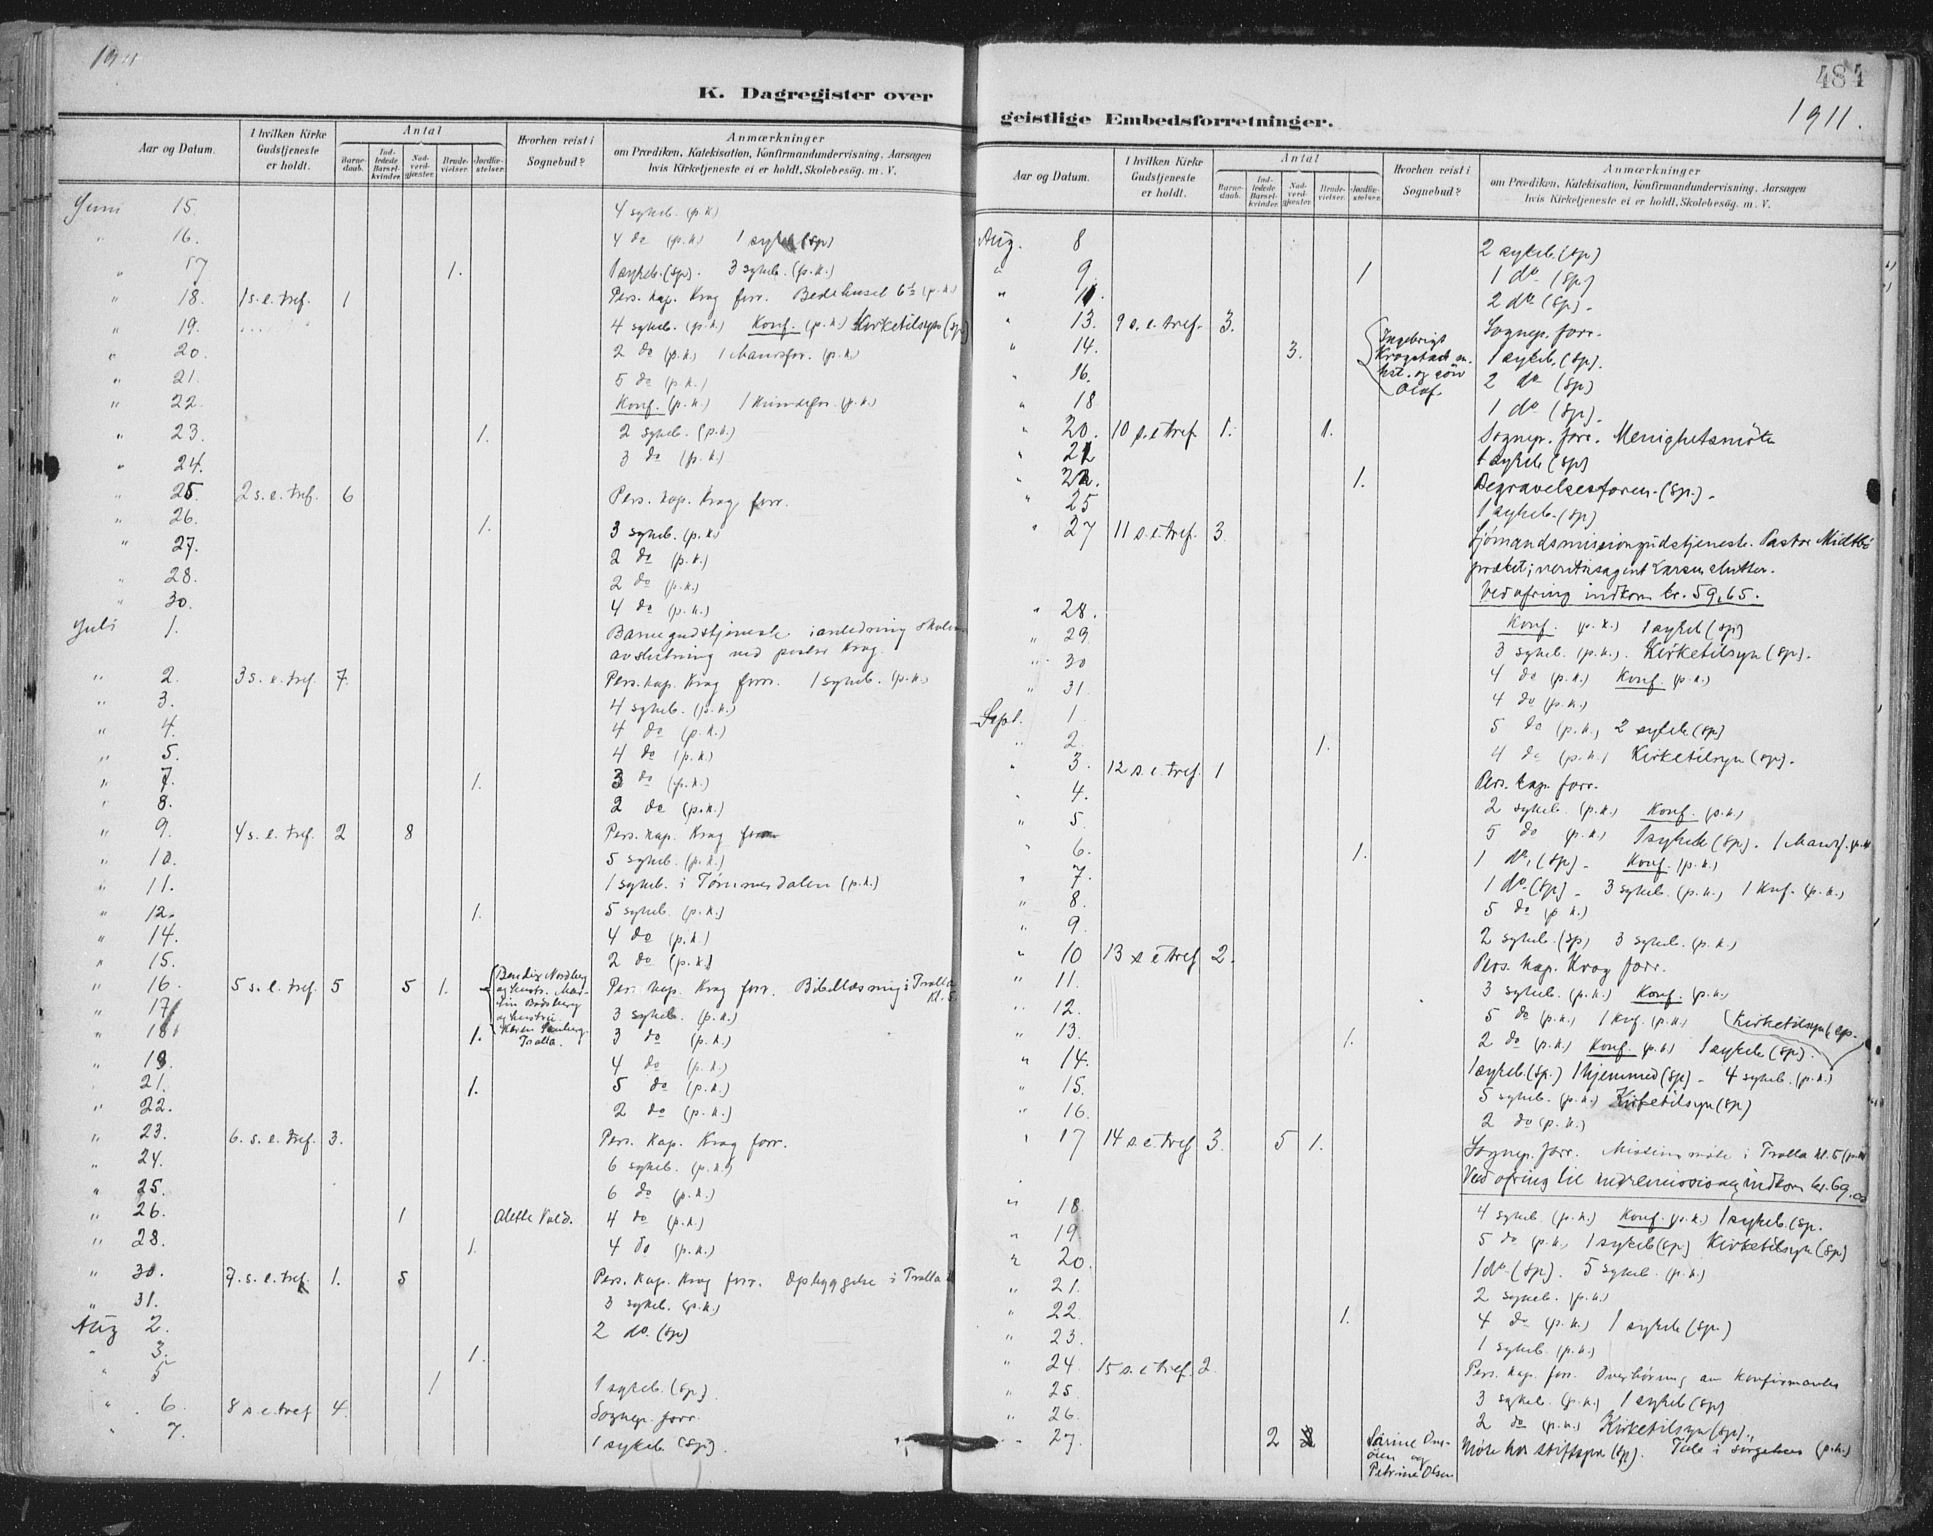 1911
K. Dagregister over
Aar og Datum. I hvilken Kirke Gudstjeneste er holdt. Antal Barnedaab. Indledede Barselkvinder. Nadverdgjæster. Brudevielser. Jordfæstelser. Hvorhen reist i Sognebud? Anmærkninger
om Prædiken, Katekisation, Konfirmandundervisning, Aarsagen
hvis Kirketjeneste ei er holdt, Skolebesøg. m. V.
Juni 15. 4 sykeb. (p.k)
" 16. 4 do (p.k) 1 sykeb (sp)
" 17 1. 1 sykeb. (sp). 3 sykeb. (p.k.)
" 18. 1 s. e. tref. 1 Pers. kap. Krag forr. Bedehuset 6½ (p.k)
" 19. 4 sykeb. (p.k) Konf. (p.k) Kirketilsyn (sp)
" 20. 2 do (p.k) (p.k)
" 21. 5 do (p.k.)
" 22. Konf. (p.k) (p.k)
" 23. 1. 2 sykeb. (p.k.)
" 24. 3 do (p.k)
" 25. 2 s. e. tref. 6 Pers. kap. Krag forr.
" 26. 1. 3 sykeb. (p.k)
" 27. 2 do (p.k.)
" 28. 2 do (p.k.)
" 30. 4 do (p.k.)
Juli 1. Barnegudstjeneste i anledning skolens
avslutning ved pastor Krag.
" 2. 3 s. e. tref. 7. Pers. kap. Krag forr. 1 sykeb. (p.k.)
" 3. 4 sykeb. (p.k.)
" 4. 4 do (p.k.)
" 5. 4 do (p.k.)
" 7. 1. 3 do (p.k.)
" 8. 2 do (p.k.)
" 9. 4 s. e. tref. 2 8 Pers. kap. Krag forr
" 10. 5 sykeb. (p.k.)
" 11. 1 sykeb. i Tømmesdalen (p.k.)
" 12. 1. 5 sykeb. (p.k.)
" 14. 4 do (p.k.)
" 15. 2 do (p.k.)
" 16. 5 s. e. tref. 5 5 1. Bendix Nordberg og hustr. Pers. kap. Krag forr. Bibellæsning i Tralla kl. 5.
" 17 og hustru. 3 sykeb. (p.k.)
" 18 1. Tralla. 3 do (p.k.)
" 19. 4 do (p.k.)
" 21. 1. 5 do (p.k.)
" 22. 2 do (p.k.)
" 23. 6. s. e. tref. 3. Pers. kap. Krag forr.
" 24. 6 sykeb. (p.k.)
" 25. 6 do (p.k.)
" 26. 1 Alette Vold. 4 do (p.k.)
" 28. 1. 4 do (p.k.)
" 30. 7. s. e. tref. 1. 5 Pers. kap. Krag forr. Opbyggelse i Tralla
" 31. 3 sykeb. (p.k.)
Aug 2. 2 do. (sp)
" 3. 1.
" 5 1 1 sykeb. (sp).
" 6. 8 s e tref 4. Sognep. forr.
" 7. 1 sykeb (sp).
484
1911.
geistlige Embedsforretninger.
Aar og Datum. I hvilken Kirke Gudstjeneste er holdt. Antal Barnedaab. Indledede Barselkvinder. Nadverdgjæster. Brudevielser. Jordfæstelser. Hvorhen reist i Sognebud? Anmærkninger
om Prædiken, Katekisation, Konfirmandundervisning, Aarsagen
hvis Kirketjeneste ei er holdt, Skolebesøg. m. V.
Aug. 8 2 sykeb. (sp)
" 9. 1 1 do (sp)
" 11. 2 do (sp).
" 13. 9 s. e. tref. 3. Sognep. forr.
" 14. 3. Ingebrigt Krogstad m. hst. og søn Olaf. 1 sykeb. (sp).
" 16. 2 do (sp)
" 18 1 do (sp).
" 20. 10 s. e tref. 1. 1. Sognep. forr. Menighetsmøte
" 21 1 sykeb (sp)
" 22. 1. Begravelsesforen. (sp).
" 25 1 sykeb. (sp)
" 27 11 s. e tref. 3. Sjømandsmissiongudstjeneste. Pastor Midtbø
præket;
Ved ofring indkom kr. 59,65.
" 28. Konf. (p.k.) 1 sykeb (sp)
" 29 3 sykeb. (p.k.). Kirketilsyn (sp).
" 30 4 do (p.k.) Konf. (p.k.)
" 31. 4 do (p.k.)
Sept. 1. 5 do (p.k.) 2 sykeb (sp)
" 2. 1. 4 do (p.k.) Kirketilsyn (sp).
" 3. 12 s. e. tref. 1 Pers. kap. forr.
" 4. 2 sykeb. (p.k.) Konf. (p.k)
" 5. 5 do (p.k.) 1 sykeb (sp).
" 6. 1. 1 do, (sp). Konf. (p.k.)
" 7. 1 do (sp). 3 sykeb. (p.k.) (p.k.)
" 8. 5 do (p k.)
" 9. 2 sykeb. (sp) 3 sykeb. (p.k.)
" 10 13 s e tref 2. Pers. kap. Krag forr.
" 11. 3 sykeb. (p.k.) Konf. (p.k.)
" 12. 5 do (p.k.) (p.k.) Kirketilsyn (sp.
" 13. 1. 2 do (p.k.) Konf. (p.k) 1 sykeb (sp).
" 14. 1 sykeb. (sp.) 1 hjemmed (sp) - 4 sykeb. (p.k.)
" 15. 5 sykeb. (p.k.) Kirketilsyn (sp)
" 16. 2 do (p.k.)
" 17 14 s. e. tref 3. 5 1. Sognep. forr. Missionsmøte i Tralla kl. 5 (p.k)
Ved ofring til indremissionen indkom kr. 69,00
" 18. 4 sykeb. (p.k.) Konf. (p.k.) 1 sykeb. (sp.
" 19 5 do (p.k. 1 sykeb (sp) Kirketilsyn (sp)
" 20. 1 do (sp). 5 sykeb. (p.k.)
" 21. 2 sykeb. (p.k.)
" 22. 1. 4 do (p.k.) 1 sykeb (sp.)
" 23. 1 sykeb. (p.k.)
" 24. 15 s. e tref. 2. Pers. kap. forr. Overhøring av konfirmanter
" 25. 3 sykeb. (p.k.) 1 sykeb (sp)
" 26. 2 do (p.k.) Kirketilsyn (sp).
" 27. 2 og Petrine Olsen Møte hos stiftspr. (sp). Tale i sørgehus (p.k.)